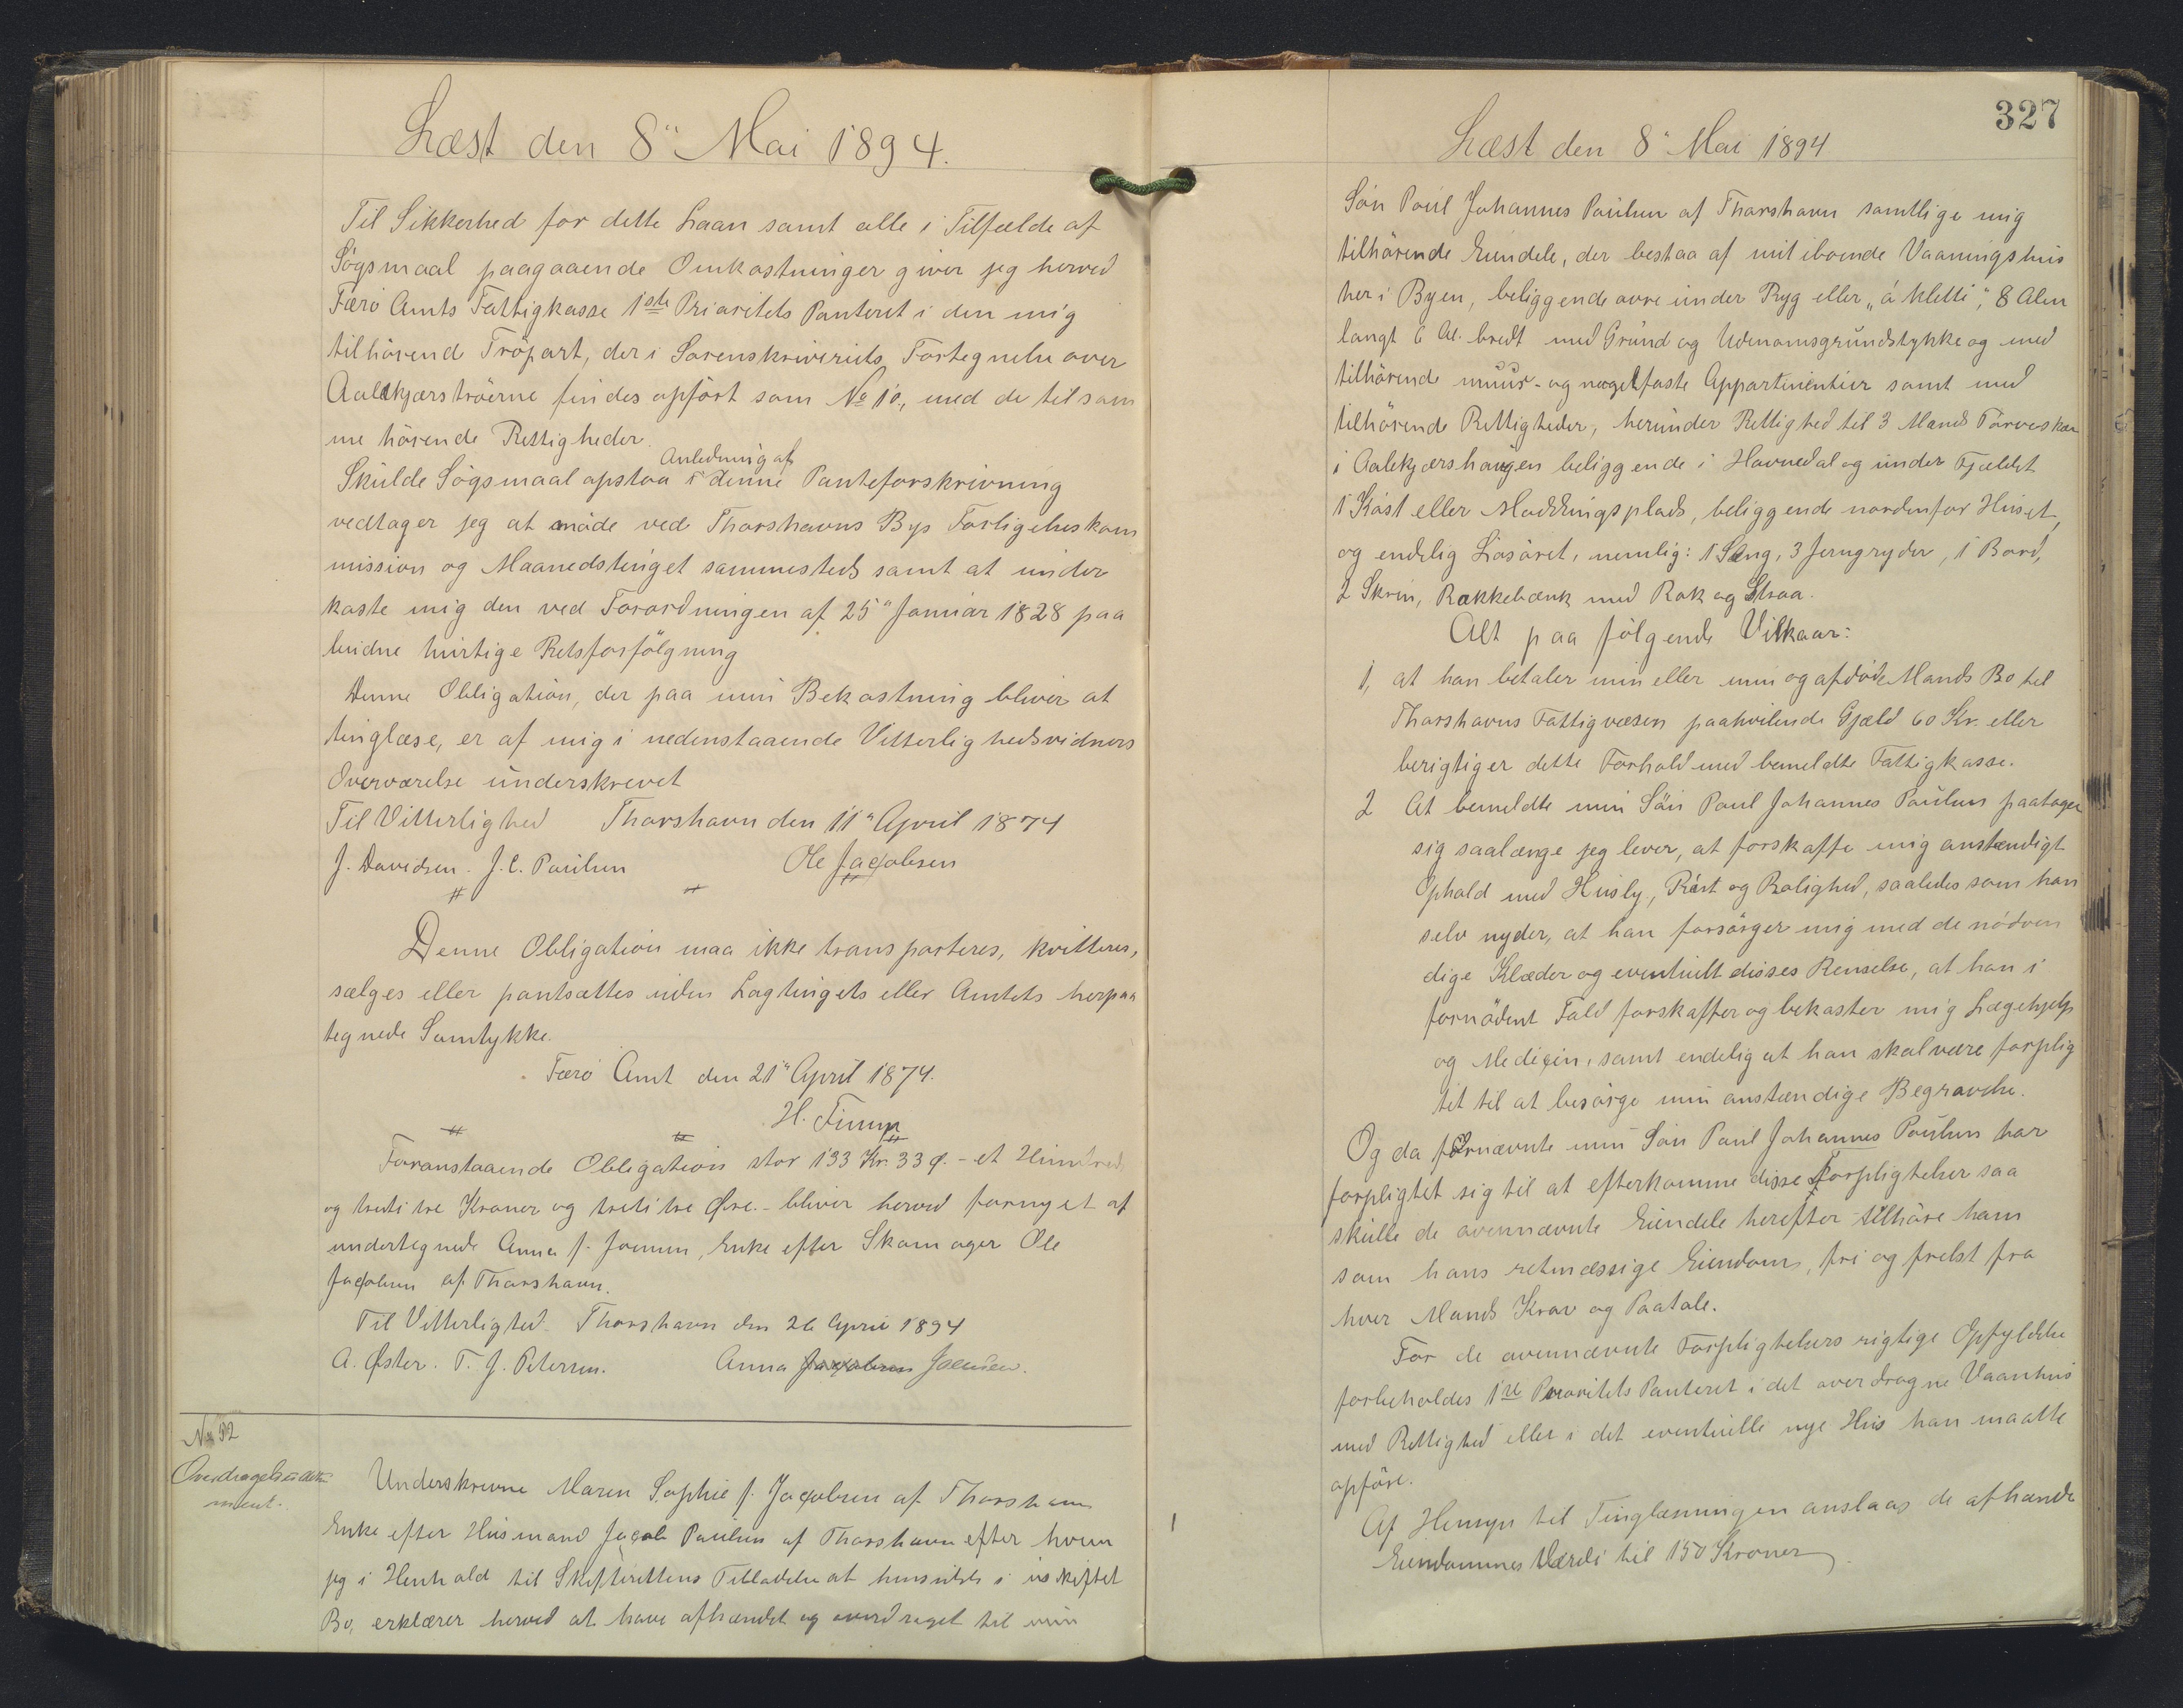 Læst den 8" Mai 1894.
Til Sikkerhed for dette Laan samt alle i Tilfælde af
Sögsmaal paagaaende Omkostninger giver jeg herved
Færö Amts Fattigkasse 1ste Prioritets Panteret i den mig
tilhörend Tröpart, der i Sorenskriveriets Fortegnelse over
Aalekjærströerne findes opfört som No 10., med de til sam
me hörende Rettigheder.
Skulde Sögsmaal opstaa i Anledning af denne Panteforskrivning
vedtager jeg at möde ved Thorshavns Bys Forligelseskom
mission og Maanedstinget sammesteds samt at under
kaste mig den ved Forordningen af 25" Januar 1828 paa
budne hurtige Retsforfölgning
Denne Obligation, der paa min Bekostning bliver at
tinglæse, er af mig i nedenstaaende Vitterlighedsvidners
Overværelse underskrevet
Til Vitterlighed Thorshavn den 11" April 1874
J. Davidsen. J. C. Poulsen Ole Jacobsen
Denne Obligation maa ikke transporteres, kvitteres,
sælges eller pantsættes uden Lagtingets eller Amtets herpaa
tegnede Samtykke.
Færö Amt den 21" April 1874.
H. Finsen
Foranstaaende Obligation stor 133 Kr. 33 Ø. - et Hundrede
og treti tre Kroner og treti tre Øre. - bliver herved fornyet af
undertegnede Anna f. Joensen, Enke efter Skomager Ole
Jacobsen af Thorshavn.
Til Vitterlighed. Thorshavn den 26 April 1894
A. Øster. T. J. Petersen. Anna Jacobsen Joensen.
No 92
Overdragelsesdoku
ment.
Underskrevne Maren Sophie f. Jacobsen af Thorshavn
Enke efter Husmand Jacob Poulsen af Thorshavn efter hvem
jeg i Henhold til Skifterettens Tilladelse at hensidde i uskiftet
Bo, erklærer herved at have afhændet og overdraget til min
327
Læst den 8" Mai 1894
Sön Poul Johannes Poulsen af Thorshavn samtlige mig
tilhörende Eiendele, der bestaa af mit iboende Vaaningshus
her i Byen, beliggende ovre under Ryg eller "á kletti", 8 Alen
langt 6 Al. bredt med Grund og Udenomsgrundstykke og med
tilhörende muur- og nagelfaste Appartinentier samt med
tilhörende Rettigheder, herunder Rettighed til 3 Mands Törveskær
i Aalekjærshaugen beliggende i Havnedal og under Fjeldet
1 Kást eller Møddingsplads, beliggende nordenfor Huset,
og endelig Lösöret, nemlig: 1 Seng, 3 Jerngryder, 1 Bord,
2 Skrin, Rokkebænk med Rok og Straa.
Alt paa fölgende Vilkaar:
1, at han betaler min eller min og afdöde Mands Bo til
Thorshavns Fattigvæsen paahvilende Gjæld 60 Kr. eller
berigtiger dette Forhold med bemeldte Fattigkasse.
2 At bemeldte min Sön Poul Johannes Poulsen paatager
sig saalænge jeg lever, at forskaffe mig anstændigt
Ophold med Husly, Röst og Rolighed, saaledes som han
selv nyder, at han forsörger mig med de nödven
dige Klæder og eventuelt disses Renselse, at han i
fornödent Fald forskaffer og bekoster mig Lægehjelp
og Medicin, samt endelig at han skal være forplig
tet til at besörge min anstændige Begravelse.
Og da fornævnte min Sön Poul Johannes Poulsen har
forpligtet sig til at efterkomme disse Forpligtelser saa
skulle de ovennævnte Eiendele herefter tilhöre ham
som hans retmæssige Eiendom, fri og frelst fra
hver Mands Krav og Paatale.
For de ovennævnte Forpligtelsers rigtige Opfyldelse
forbeholdes 1ste Prioritets Panteret i det overdragne Vaanhus
med Rettighed eller i det eventuelle nye Hus han maatte
opföre.
Af Hensyn til Tinglæsningen anslaas de afhændede
Eiendommes Værdi til 150 Kroner